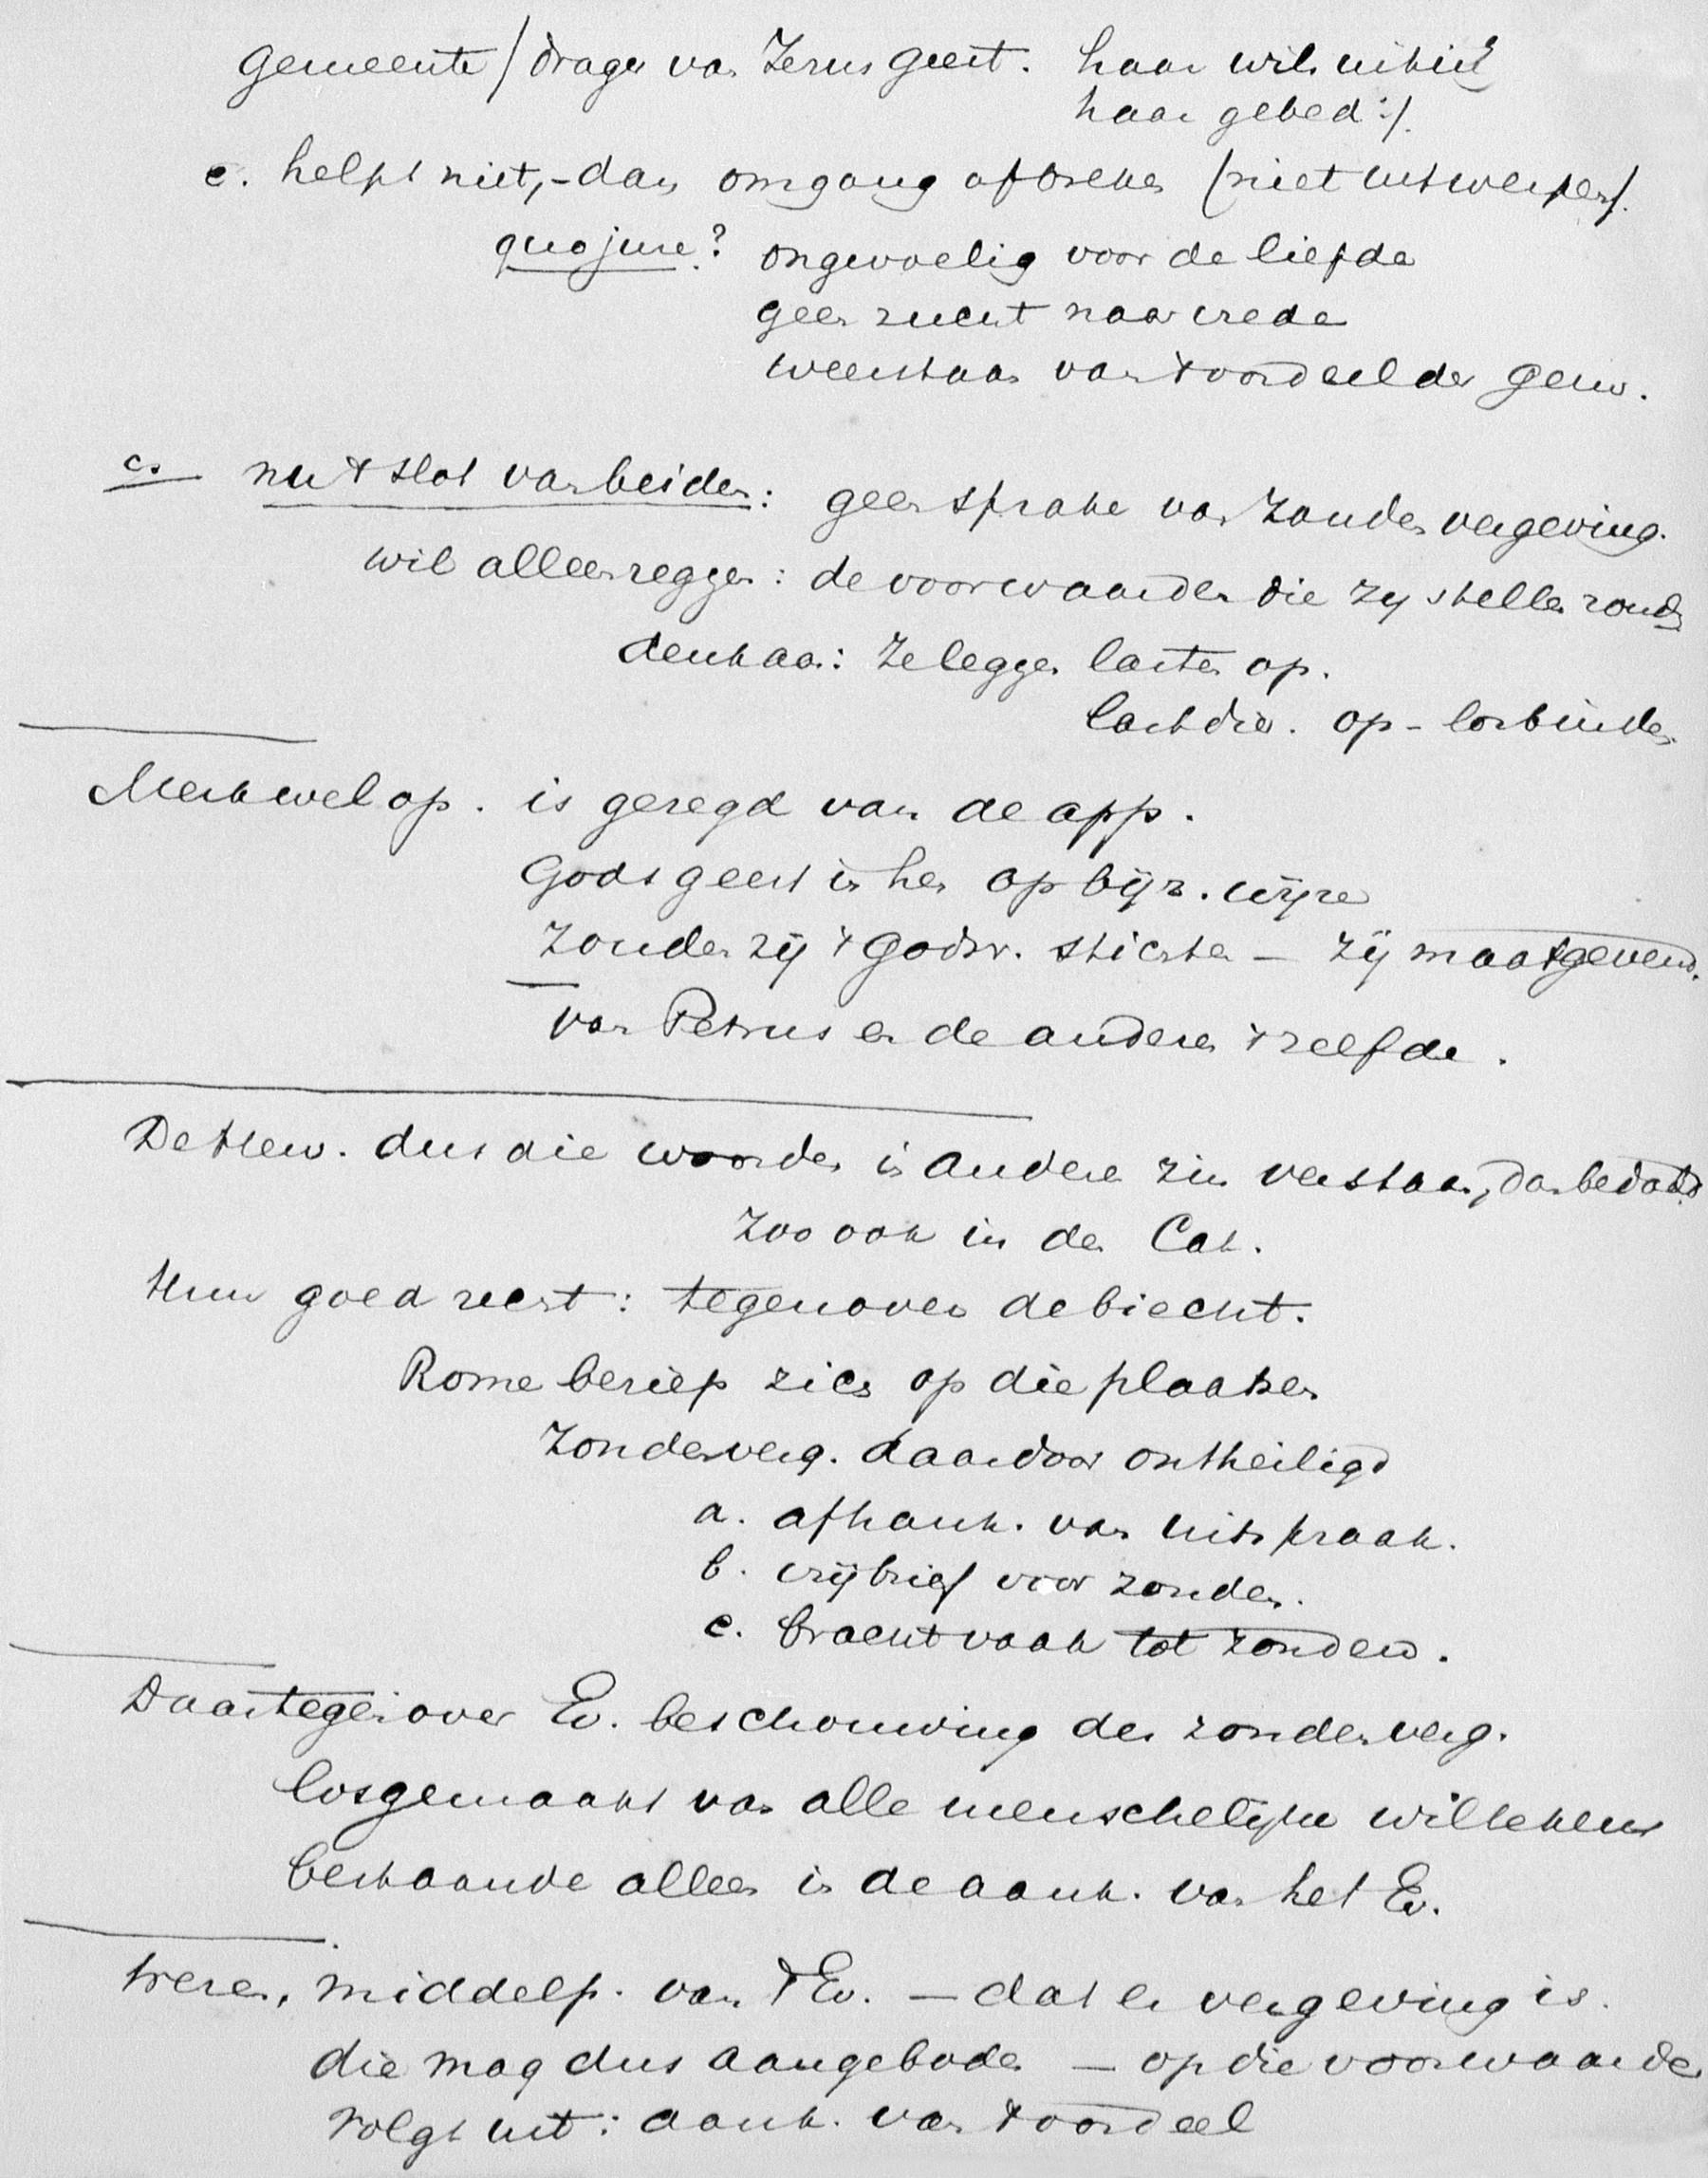 gemeente / drager van Jezus geest. haar wil uit
haar gebed :/.
c. helpt niet, - dan omgang afbreken (niet uitwerpen/.
quo jure? ongevoelig voor de liefde
geen zucht naar vrede
weerstaan van 't oordeel der gem.
c. nu 't slot van beiden: geen sprake van zonden vergeving.
wil alleen zeggen: de voorwaarden die zij stellen
denk aan: Ze leggen lasten op.
lastdier. op - losbinden
Merk wel op. is gezegd van de app.
Gods geest in hen op bijz. wijze
Zouden zij 't Godsr. stichten — zij maatgevend.
van Petrus en de anderen 't zelfde.
De Herv. dus die woorden in anderen zin verstaan, dan bedoeld
Zoo ook in den Cat.
Hun goed recht: tegenover de biecht.
Rome beriep zich op die plaatsen
Zondenverg. daardoor ontheiligd
a. afhank. van uitspraak.
b. vrijbrief voor zonden.
c. bracht vaak tot zonden.
Daartegenover Ev. beschouwing der zondenverg.
losgemaakt van alle menschelijke willekeur
bestaande alleen in de aank. van het Ev.
Wezen, middelp. van 't Ev. — dat er vergeving is.
die mag dus aangeboden — op die voorwaarden
volgt uit: aank. van 't oordeel